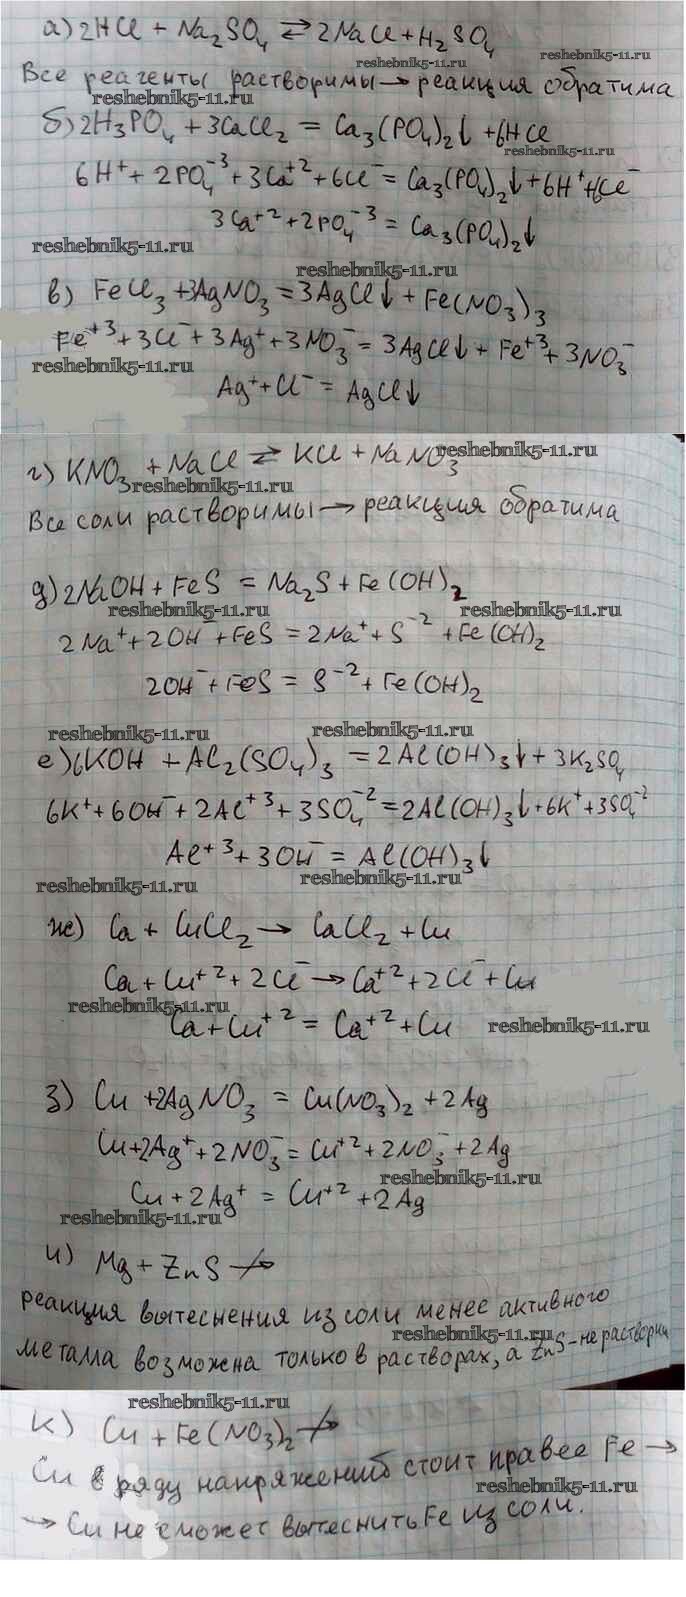 а) 2HCl + Na₂SO₄ ⇄ 2NaCl + H₂SO₄
reshebnik5-11.ru reshebnik5-11.ru
Все реагенты растворимы → реакция обратима
reshebnik5-11.ru
б) 2H₃PO₄ + 3CaCl₂ = Ca₃(PO₄)₂↓ + 6HCl
reshebnik5-11.ru
6H⁺ + 2PO₄⁻³ + 3Ca⁺² + 6Cl⁻ = Ca₃(PO₄)₂↓ + 6H⁺ + 6Cl⁻
3Ca⁺² + 2PO₄⁻³ = Ca₃(PO₄)₂↓
reshebnik5-11.ru
reshebnik5-11.ru
в) FeCl₃ + 3AgNO₃ = 3AgCl↓ + Fe(NO₃)₃
Fe⁺³ + 3Cl⁻ + 3Ag⁺ + 3NO₃⁻ = 3AgCl↓ + Fe⁺³ + 3NO₃⁻
reshebnik5-11.ru
Ag⁺ + Cl⁻ = AgCl↓
reshebnik5-11.ru
г) KNO₃ + NaCl ⇄ KCl + NaNO₃
reshebnik5-11.ru
Все соли растворимы → реакция обратима
д) 2NaOH + FeS = Na₂S + Fe(OH)₂
reshebnik5-11.ru reshebnik5-11.ru
2Na⁺ + 2OH⁻ + FeS = 2Na⁺ + S⁻² + Fe(OH)₂
2OH⁻ + FeS = S⁻² + Fe(OH)₂
reshebnik5-11.ru reshebnik5-11.ru
е) 6KOH + Al₂(SO₄)₃ = 2Al(OH)₃↓ + 3K₂SO₄
6K⁺ + 6OH⁻ + 2Al⁺³ + 3SO₄⁻² = 2Al(OH)₃↓ + 6K⁺ + 3SO₄⁻²
Al⁺³ + 3OH⁻ = Al(OH)₃↓
reshebnik5-11.ru reshebnik5-11.ru
ж) Ca + CuCl₂ → CaCl₂ + Cu
Ca + Cu⁺² + 2Cl⁻ → Ca⁺² + 2Cl⁻ + Cu
reshebnik5-11.ru
Ca + Cu⁺² = Ca⁺² + Cu
reshebnik5-11.ru
з) Cu + 2AgNO₃ = Cu(NO₃)₂ + 2Ag
Cu + 2Ag⁺ + 2NO₃⁻ = Cu⁺² + 2NO₃⁻ + 2Ag
reshebnik5-11.ru
Cu + 2Ag⁺ = Cu⁺² + 2Ag
reshebnik5-11.ru
и) Mg + ZnS ↛
реакция вытеснения из соли менее активного
reshebnik5-11.ru
металла возможна только в растворах, а ZnS - не растворим
reshebnik5-11.ru
к) Cu + Fe(NO₃)₂ ↛
Cu в ряду напряжений стоит правее Fe →
reshebnik5-11.ru
→ Cu не сможет вытеснить Fe из соли.